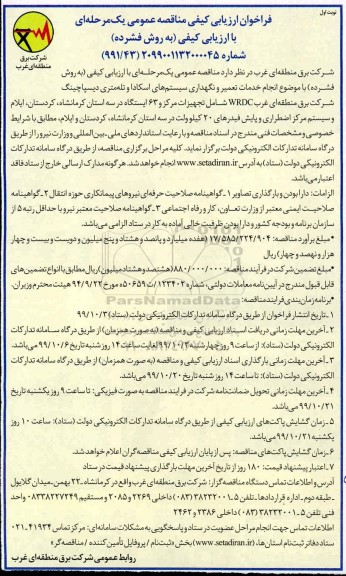 نوبت اول
فراخوان ارزیابی کیفی مناقصه عمومی یک‌مرحله‌ای
با ارزیابی کیفی (به روش فشرده)
شماره ۲۰۹۹۰۰۱۱۳۲۰۰۰۰۴۵ (۹۹۱/۴۳)
شرکت برق
منطقه‌ای غرب
شرکت برق منطقه‌ای غرب در نظر دارد مناقصه عمومی یک‌مرحله‌ای با ارزیابی کیفی (به روش
فشرده) با موضوع انجام خدمات تعمیر و نگهداری سیستم‌های اسکادا و تله‌متری دیسپاچینگ
شرکت برق منطقه‌ای غرب WRDC شامل تجهیزات مرکز و ۶۳ ایستگاه در سه استان کرمانشاه، کردستان، ایلام
و سیستم مرکز اضطراری و پایش فیدرهای ۲۰ کیلوولت در سه استان کرمانشاه، کردستان و ایلام، مطابق با شرایط
خصوصی و مشخصات فنی مندرج در اسناد مناقصه و با رعایت استانداردهای ملی، بین‌المللی و وزارت نیرو را از طریق
درگاه سامانه تدارکات الکترونیکی دولت برگزار نماید. کلیه مراحل برگزاری مناقصه، از طریق درگاه سامانه تدارکات
الکترونیکی دولت (ستاد) به آدرس www.setadiran.ir انجام خواهد شد. هرگونه مدارک ارسالی خارج از ستاد فاقد
اعتبار می‌باشد.
الزامات: دارا بودن و بارگذاری تصاویر ۱-گواهینامه صلاحیت حرفه‌ای نیروهای پیمانکاری حوزه انتقال ۲-گواهینامه
صلاحیت ایمنی معتبر از وزارت تعاون، کار و رفاه اجتماعی ۳-گواهینامه صلاحیت معتبر نیرو با حداقل رتبه ۵ از
سازمان برنامه و بودجه کشور و دارا بودن ظرفیت خالی آماده به کار در ستاد الزامی می‌باشد.
*مبلغ برآورد مناقصه: ۱۷/۵۸۵/۲۲۴/۹۰۴ (هفده میلیارد و پانصد و هشتاد و پنج میلیون و دویست و بیست و چهار
هزار و نهصد و چهار) ریال
*مبلغ تضمین شرکت در فرآیند مناقصه: ۸۸۰/۰۰۰/۰۰۰ (هشتصد و هشتاد میلیون) ریال مطابق با انواع تضمین‌های
قابل قبول مندرج در آیین‌نامه معاملات دولتی، شماره ۱۲۳۴۰۲/ت ۵۰۶۵۹ ه مورخ ۹۴/۹/۲۲ هیئت محترم وزیران.
*برنامه زمان‌بندی فرایند مناقصه:
۱-تاریخ انتشار فراخوان از طریق درگاه سامانه تدارکات الکترونیکی دولت (ستاد): ۹۹/۱۰/۳
۲-آخرین مهلت زمانی دریافت اسناد ارزیابی کیفی و مناقصه (به صورت همزمان) از طریق درگاه سامانه تدارکات
الکترونیکی دولت (ستاد): از ساعت ۹ روز چهارشنبه ۹۹/۱۰/۳ لغایت ساعت ۱۴ روز شنبه تاریخ ۹۹/۱۰/۶ می‌باشد.
۳-آخرین مهلت زمانی بارگذاری اسناد ارزیابی کیفی و مناقصه (به صورت همزمان) از طریق درگاه سامانه تدارکات
الکترونیکی دولت (ستاد): تا ساعت ۱۴ روز شنبه تاریخ ۹۹/۱۰/۲۰ می‌باشد.
۴-آخرین مهلت زمانی تحویل ضمانت‌نامه شرکت در فرایند مناقصه به صورت فیزیکی: تا ساعت ۹ روز یکشنبه تاریخ
۹۹/۱۰/۲۱ می‌باشد.
۵-زمان گشایش پاکت‌های ارزیابی کیفی از طریق درگاه سامانه تدارکات الکترونیکی دولت (ستاد): ساعت ۱۰ روز
یکشنبه ۹۹/۱۰/۲۱ می‌باشد.
۶-زمان گشایش پاکت‌های مناقصه: پس از پایان ارزیابی کیفی مناقصه‌گران اعلام خواهد شد.
۷-اعتبار پیشنهاد قیمت: ۱۸۰ روز از تاریخ آخرین مهلت بارگذاری پیشنهاد قیمت در ستاد
آدرس و اطلاعات تماس دستگاه مناقصه‌گزار: شرکت برق منطقه‌ای غرب واقع در کرمانشاه-۲۲ بهمن-میدان گلایول
-طبقه دوم-اداره قراردادها-تلفن ۵-۳۸۲۳۲۰۰۱ (۰۸۳) داخلی ۲۲۶۹ و ۲۰۸۵ و مستقیم ۰۸۳۳۸۲۲۷۲۴۹ واحد
فنی: تلفن ۵-۳۸۲۳۲۰۰۱ (۰۸۳) داخلی ۲۳۸۶ و ۲۴۶۲
اطلاعات تماس جهت انجام مراحل عضویت در ستاد و پاسخگویی به مشکلات سامانه‌ای: مرکز تماس ۴۱۹۳۴-۰۲۱
ستاد دفاتر ثبت‌نام استان‌ها، (www.setadiran.ir) بخش «ثبت‌نام / پروفایل تأمین‌کننده / مناقصه‌گر»
روابط عمومی شرکت برق منطقه‌ای غرب
ParsNamadData